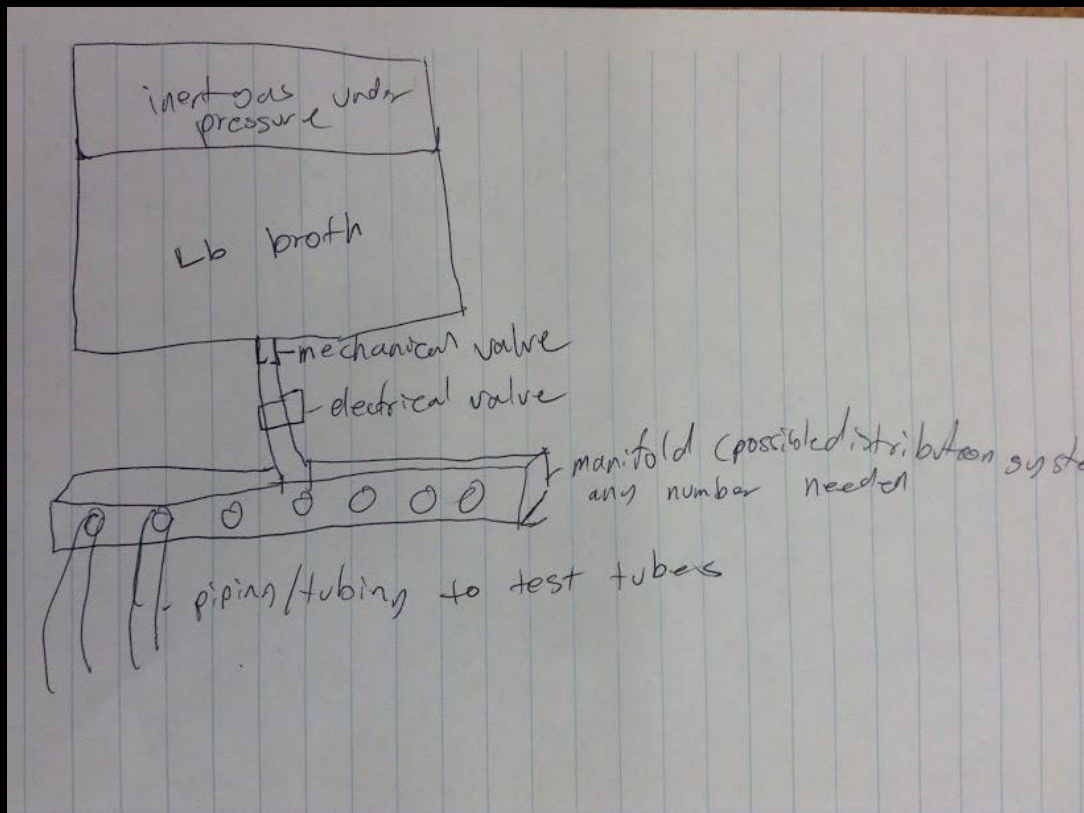 inert gas under
pressure
Lb broth
mechanical valve
electrical valve
manifold (possible distribution syste
any number needed
piping/tubing to test tubes